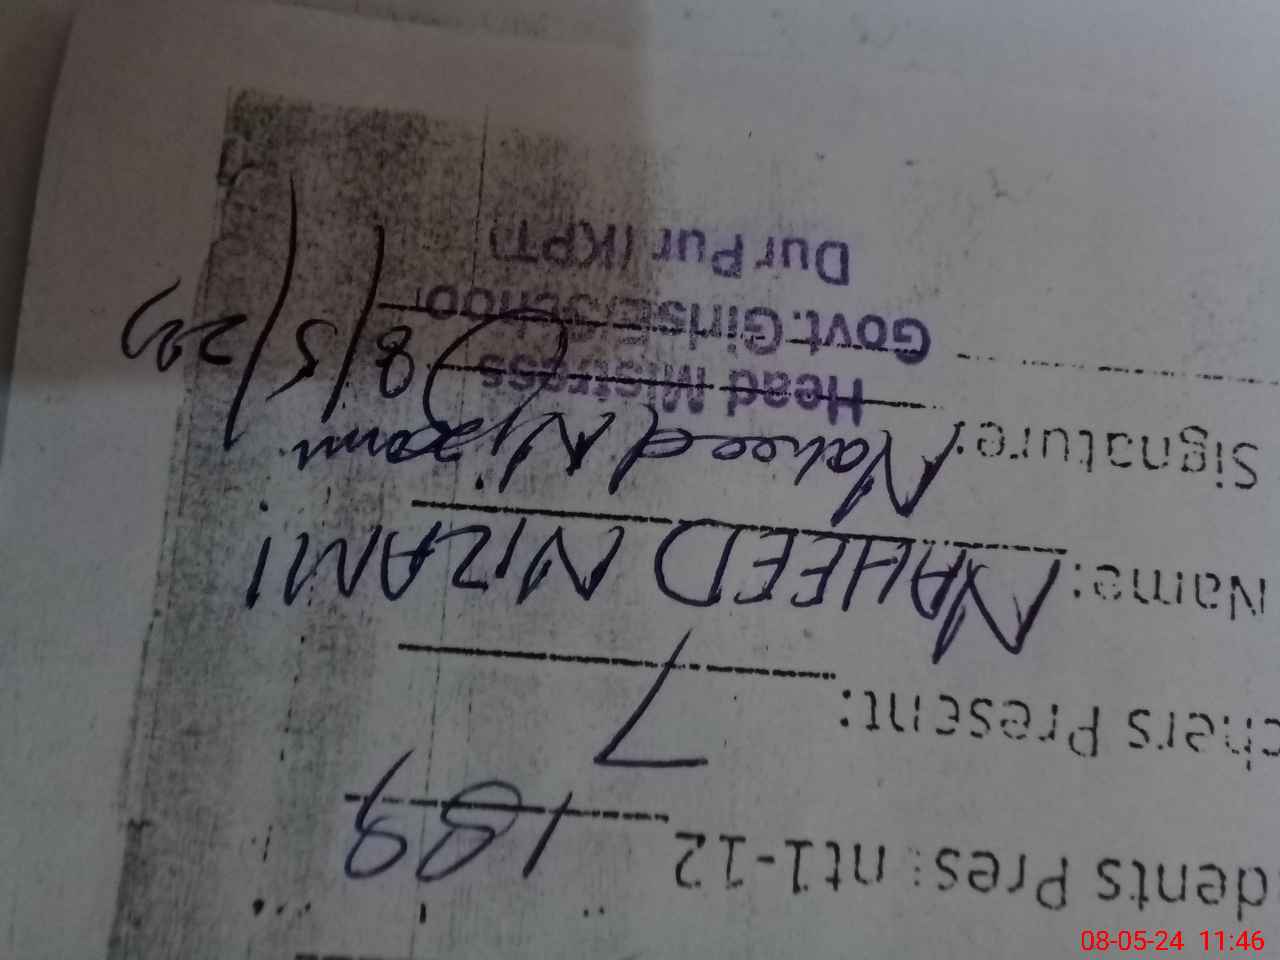 dents Pres: nt1-12 189
chers Present: 7
Name: NAHEED NIZAMI
Signature: Naheed Nizami
Head Mistress 8/5/
Govt. Girls E/School
Dur Pur (KPT)
08-05-24 11:46